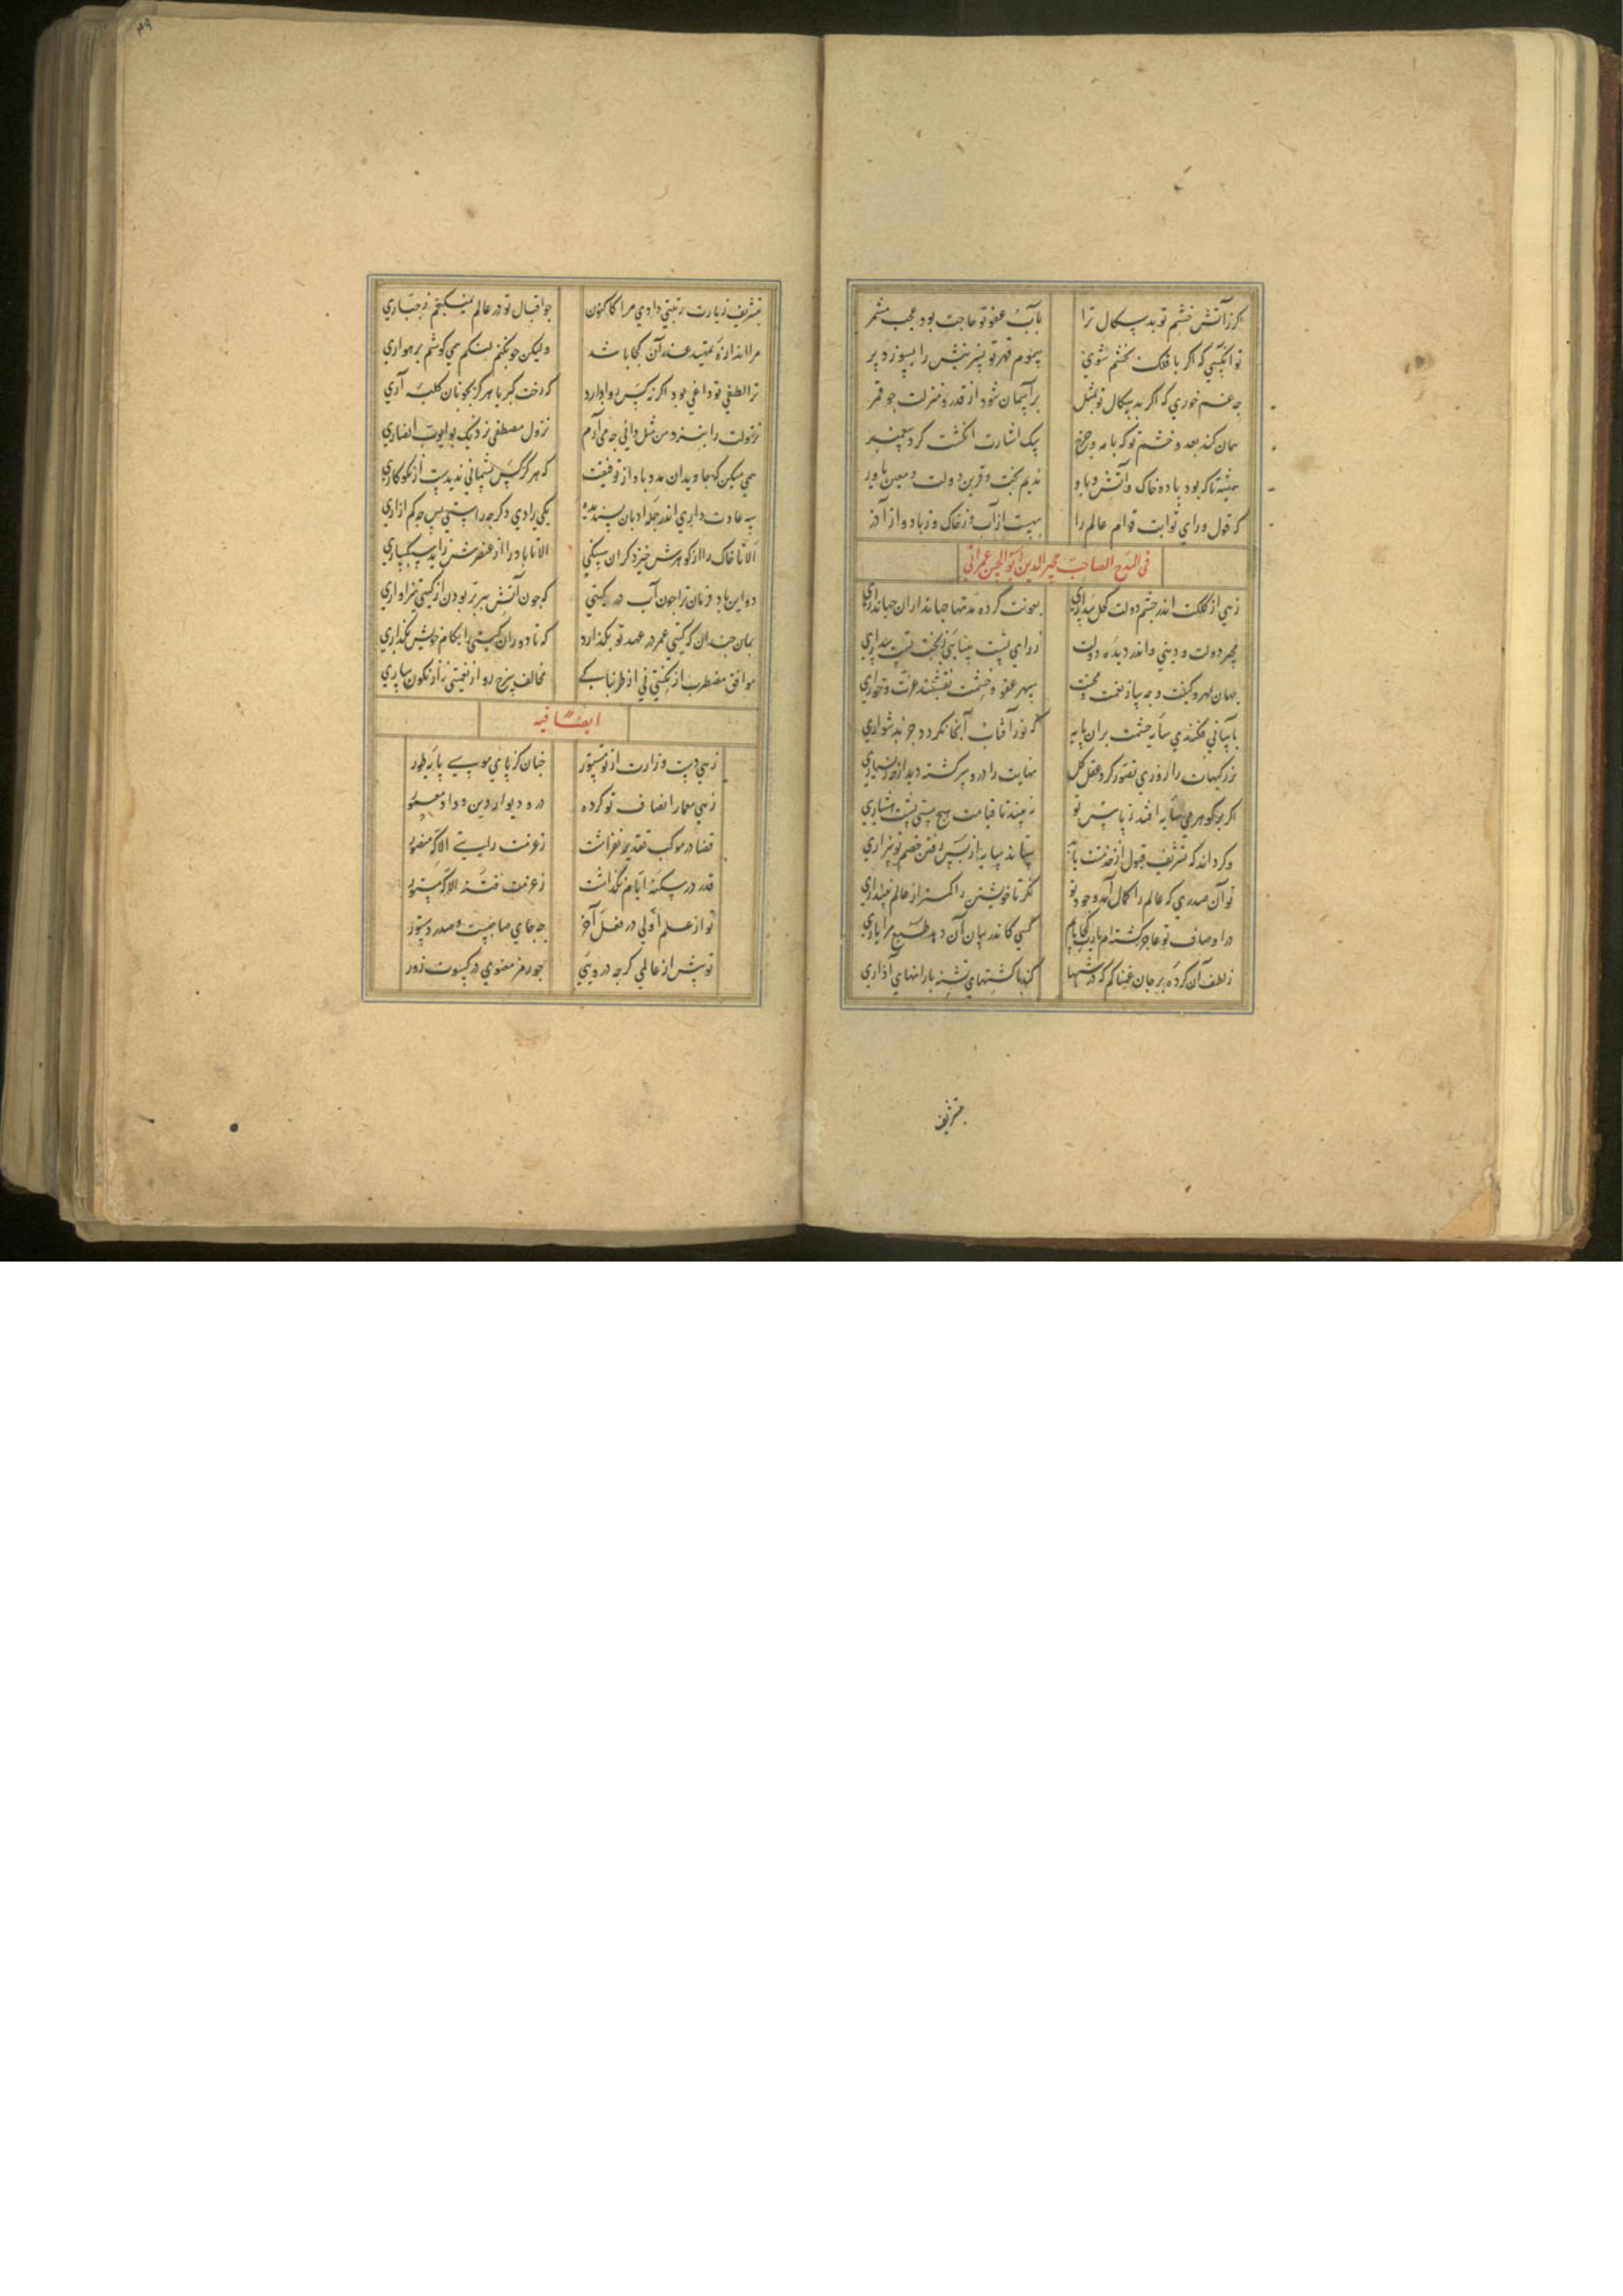 کر زآتش خشم تو بدسکال ترا بآب عفو تو حاجت بود عجب مشمر
تو آنکسی که اکر با فلک بخشم شوی سموم قهر تو نسرینش را بسوزد پر
جه غم خوری که اکر بدسکال تو بمثل بر آسمان شود از قدر و منزلت جو قمر
همان کند بعدو خشم تو که با مه چرخ بیک اشارت انکشت کرد پیغمبر
همیشه تا که بود باد و خاک و آتش و باد ندیم بخت و قرین دولت و معین یاور
که قول و رای توابت قوام عالم را بهست از آب و ز خاک و ز باد و از آذر
فی المدح الصاحب مجیر الدین ابو الحسن عمرانی
زهی از کلکت اندر چشم دولت کحل بیداری بعونت کرده مدتها جهانداران جهانداری
مجیر دولت و دینی و اندر دیده دولت ز رای تست بینایی ز بخت تست بیداری
جهان مهر و کینت وجه ساز نعمت و محنت سپهر عفو و خشمت نقشبند عزت و خواری
بآسانی فکندی سایه حشمت بران پایه که نور آفتاب آنجا نکردد جز بدشواری
بزرکیهات را روزی تصور کرد عقل کل نهایت را درو سرکشته دید از جرز بسیاری
اکر بر کوهر می سایه افتد ز پاس تو نه بیند تا قیامت هیچ مستی پشت هشیاری
و کر داند که تشریف قبول از خدمتت یابد بماند سایه از پس رفتن خصم تو بیزاری
تو آن صدری که عالم را کمال آمد وجود تو نکر تا خویشتن را کمتر از عالم نپنداری
در اوصاف تو عاجز کشته‌ام یارب کجا یابم کسی کاندر بیان آن دهد طبع مرا یاری
ز لطف آن کرده بر جان غمناکم که در شبها کند با کشتهای تشنه بارانهای آذاری
بتشریف
بتشریف زیارت رتبتی دادی مرا کاکنون جو اقبال تو در عالم نمیکنجم ز جباری
مرا اندازه تمهید عذر آن کجا باشد ولیکن جو بکنجم نکنجم همی کوشم بر همواری
ترا لطفی تو داعی بود اکر نه کس روا دارد که رخت کبریا هرکز بجونان کلبه آری
نزولت را بنزد من مثل دانی جه می‌آرم نزول مصطفی نزدیک بو ایوب انصاری
همی میکن که جاویدان مدد باد از توفیقت که هرکز کس پشیمانی ندیدست از نکوکاری
سه عادت داری اندر جمله ادیان پسندیده یکی رادی دکر جه راستی پس جه کم‌ آزاری
الا تا خاک را از کوهرش خیزد کران سنکی الا تا باد را از عنصرش زاید سبکساری
دو این باد فرمان ترا جون آب در کیتی که جون آتش ببرتر بودن از کیتی سزاواری
بمان جندان که کیتی عمر در عهد تو بکذارد که تا دوران کیتی را بکام خویش بکذاری
موافق مضطرب از نکبتی نی از طربناکی مخالف سرخ رو از نعمتی نه از نکون‌ساری
ایضا فیه
زهی دست وزارت از تو دستور جنان کز پای موسی پایه طور
زهی معمار انصاف تو کرده در و دیوار دین و داد معمور
قضا در موکب تقدیر نفراشت ز عزمت رایتی الا که منصور
قدر در سکنه ایام نکذاشت ز عزمت فتنه الا که مستور
تو از علم اولی در فعل آخر جه جای صاحبیست و صدر دستور
تو بیش از عالمی کرجه درویی جو رمز معنوی در کسوت زور